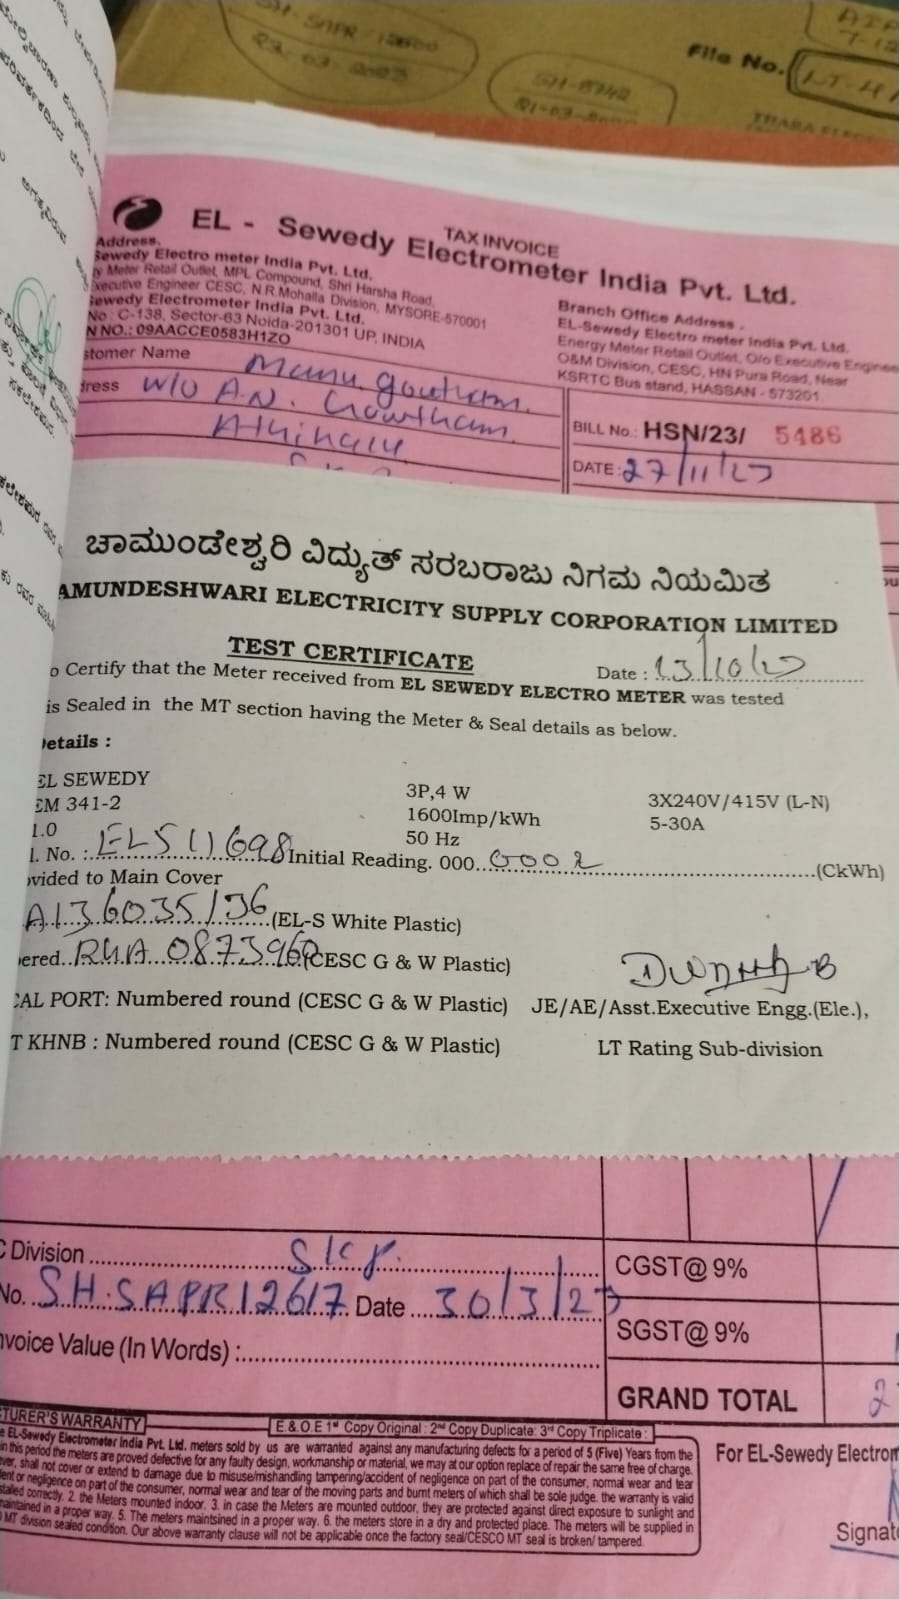 SH-SAPR/12600
23.03.2023
SH-8742
21-03-
File No.
LT-4
TAX INVOICE
EL - Sewedy Electrometer India Pvt. Ltd.
Address.
Sewedy Electro meter India Pvt. Ltd.
y Meter Retail Outlet, MPL Compound, Shri Harsha Road,
Executive Engineer CESC, N.R.Mohalla Division, MYSORE-570001
Sewedy Electrometer India Pvt. Ltd.
No : C-138, Sector-63 Noida-201301 UP, INDIA
N NO.: 09AACCE0583H1ZO
Branch Office Address .
EL-Sewedy Electro meter India Pvt. Ltd.
Energy Meter Retail Outlet, O/o Executive Engineer
O&M Division, CESC, HN Pura Road, Near
KSRTC Bus stand, HASSAN - 573201.
stomer Name
dress W/O A.N. Gowtham
BILL No.: HSN/23/ 5486
DATE: 27/11/23
ಚಾಮುಂಡೇಶ್ವರಿ ವಿದ್ಯುತ್ ಸರಬರಾಜು ನಿಗಮ ನಿಯಮಿತ
AMUNDESHWARI ELECTRICITY SUPPLY CORPORATION LIMITED
TEST CERTIFICATE
Date : 13/10/23
o Certify that the Meter received from EL SEWEDY ELECTRO METER was tested
is Sealed in the MT section having the Meter & Seal details as below.
Details :
EL SEWEDY 3P,4 W 3X240V/415V (L-N)
EM 341-2 1600Imp/kWh 5-30A
1.0 50 Hz
l. No. : ELS 11698 Initial Reading. 000 0002 (CkWh)
ovided to Main Cover
A136035/36 (EL-S White Plastic)
ered..RHA 0873960 (CESC G & W Plastic)
CAL PORT: Numbered round (CESC G & W Plastic) JE/AE/Asst.Executive Engg.(Ele.),
T KHNB : Numbered round (CESC G & W Plastic) LT Rating Sub-division
C Division Skp.
No. SH.SAPR12617 Date 30/3/23
nvoice Value (In Words) :
CGST@ 9%
SGST@ 9%
GRAND TOTAL 2
TURER'S WARRANTY E & O.E 1st Copy Original : 2nd Copy Duplicate: 3rd Copy Triplicate :
e EL-Sewedy Electrometer India Pvt. Ltd. meters sold by us are warranted against any manufacturing defects for a period of 5 (Five) Years from the
in this period the meters are proved defective for any faulty design, workmanship or material, we may at our option replace of repair the same free of charge.
ver, shall not cover or extend to damage due to misuse/mishandling tampering/accident of negligence on part of the consumer, normal wear and tear
dent or negligence on part of the consumer, normal wear and tear of the moving parts and burnt meters of which shall be sole judge. the warranty is valid
stalled correctly. 2. the Meters mounted indoor. 3. in case the Meters are mounted outdoor, they are protected against direct exposure to sunlight and
aintained in a proper way. 5. The meters maintsined in a proper way. 6. the meters store in a dry and protected place. The meters will be supplied in
MT division sealed condition. Our above warranty clause will not be applicable once the factory seal/CESCO MT seal is broken/ tampered.
For EL-Sewedy Electrom
Signat